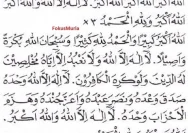 اَللهُ أَكْبَرُ اَللهُ أَكْبَرُ اَللهُ أَكْبَرُ. لَا إِلٰهَ إِلَّا اللهُ وَاللهُ أَكْبَرُ
اَللهُ أَكْبَرُ وَلِلّٰهِ الْحَمْدُ ×٣
FokusMuria
اَللهُ أَكْبَرُ كَبِيْرًا وَالْحَمْدُ لِلّٰهِ كَثِيْرًا وَسُبْحَانَ اللهِ بُكْرَةً
وَأَصِيْلًا. لَا إِلٰهَ إِلَّا اللهُ وَلَا نَعْبُدُ إِلَّا إِيَّاهُ مُخْلِصِيْنَ
لَهُ الدِّيْنَ وَلَوْ كَرِهَ الْكَافِرُوْنَ. لَا إِلٰهَ إِلَّا اللهُ وَحْدَهُ
صَدَقَ وَعْدَهُ وَنَصَرَ عَبْدَهُ وَأَعَزَّ جُنْدَهُ وَهَزَمَ
الْأَحْزَابَ وَحْدَهُ. لَا إِلٰهَ إِلَّا اللهُ وَاللهُ أَكْبَرُ.